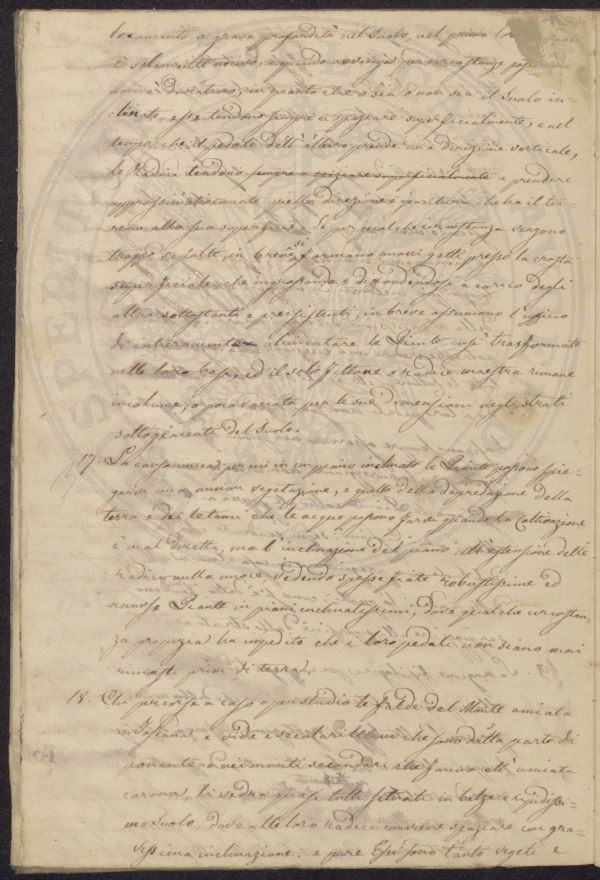 locamento a grave profondità nel Suolo, nel primo
è solamente nocivo, e quando avvenga per circostanza
non è duraturo, in quanto che o sia o non sia il Suolo in-
clinato, esse tendono sempre a spaziare superficialmente, e nel
tempo che il pedale dell'albero prende una direzione verticale,
le Radici tendono sempre a spaziare superficialmente a prendere
approssimativamente quella direzione e giacitura che ha il ter-
reno alla sua superficie. Se per qualche circostanza vengono
troppo sepolte, in breve si formano nuovi getti presso la crosta
superficiale, che ingrossando e diffondendosi a carico degli
altri sottostanti e preesistenti, in breve assumono l'ufficio
di intieramente alimentare le Piante così trasformate
nelle loro basi, ed il solo fittone o radice maestra rimane
incolume, o poco variata per le sue dimensioni negli strati
sottogiacenti del Suolo.
17. La causa unica per cui in un piano inclinato le Piante possono spie-
gare una minor vegetazione, è quella della depredazione della
terra e dei letami che le acque possono farvi quando la Coltivazione
è mal diretta, ma l'inclinazione del piano all'estensione delle
radici nulla nuoce, vedendo spesse fiate robustissime ed
annose Piante in piani inclinatissimi, dove qualche circostan-
za propizia ha impedito che i loro pedali non siano mai
rimasti privi di terra.
18. Chi percorse a caso o per studio le falde del Monte amiata
in Toscana, e vide i secolari che sono dalla parte di
ponente, o nei monti secondari che fanno all'amiata
corona, li vedrà quasi tutti situati in balze e ripidissi-
mo Suolo, dove alle loro radici conviene spaziare con gra-
vissima inclinazione: e pure Essi sono tanto vegeti e